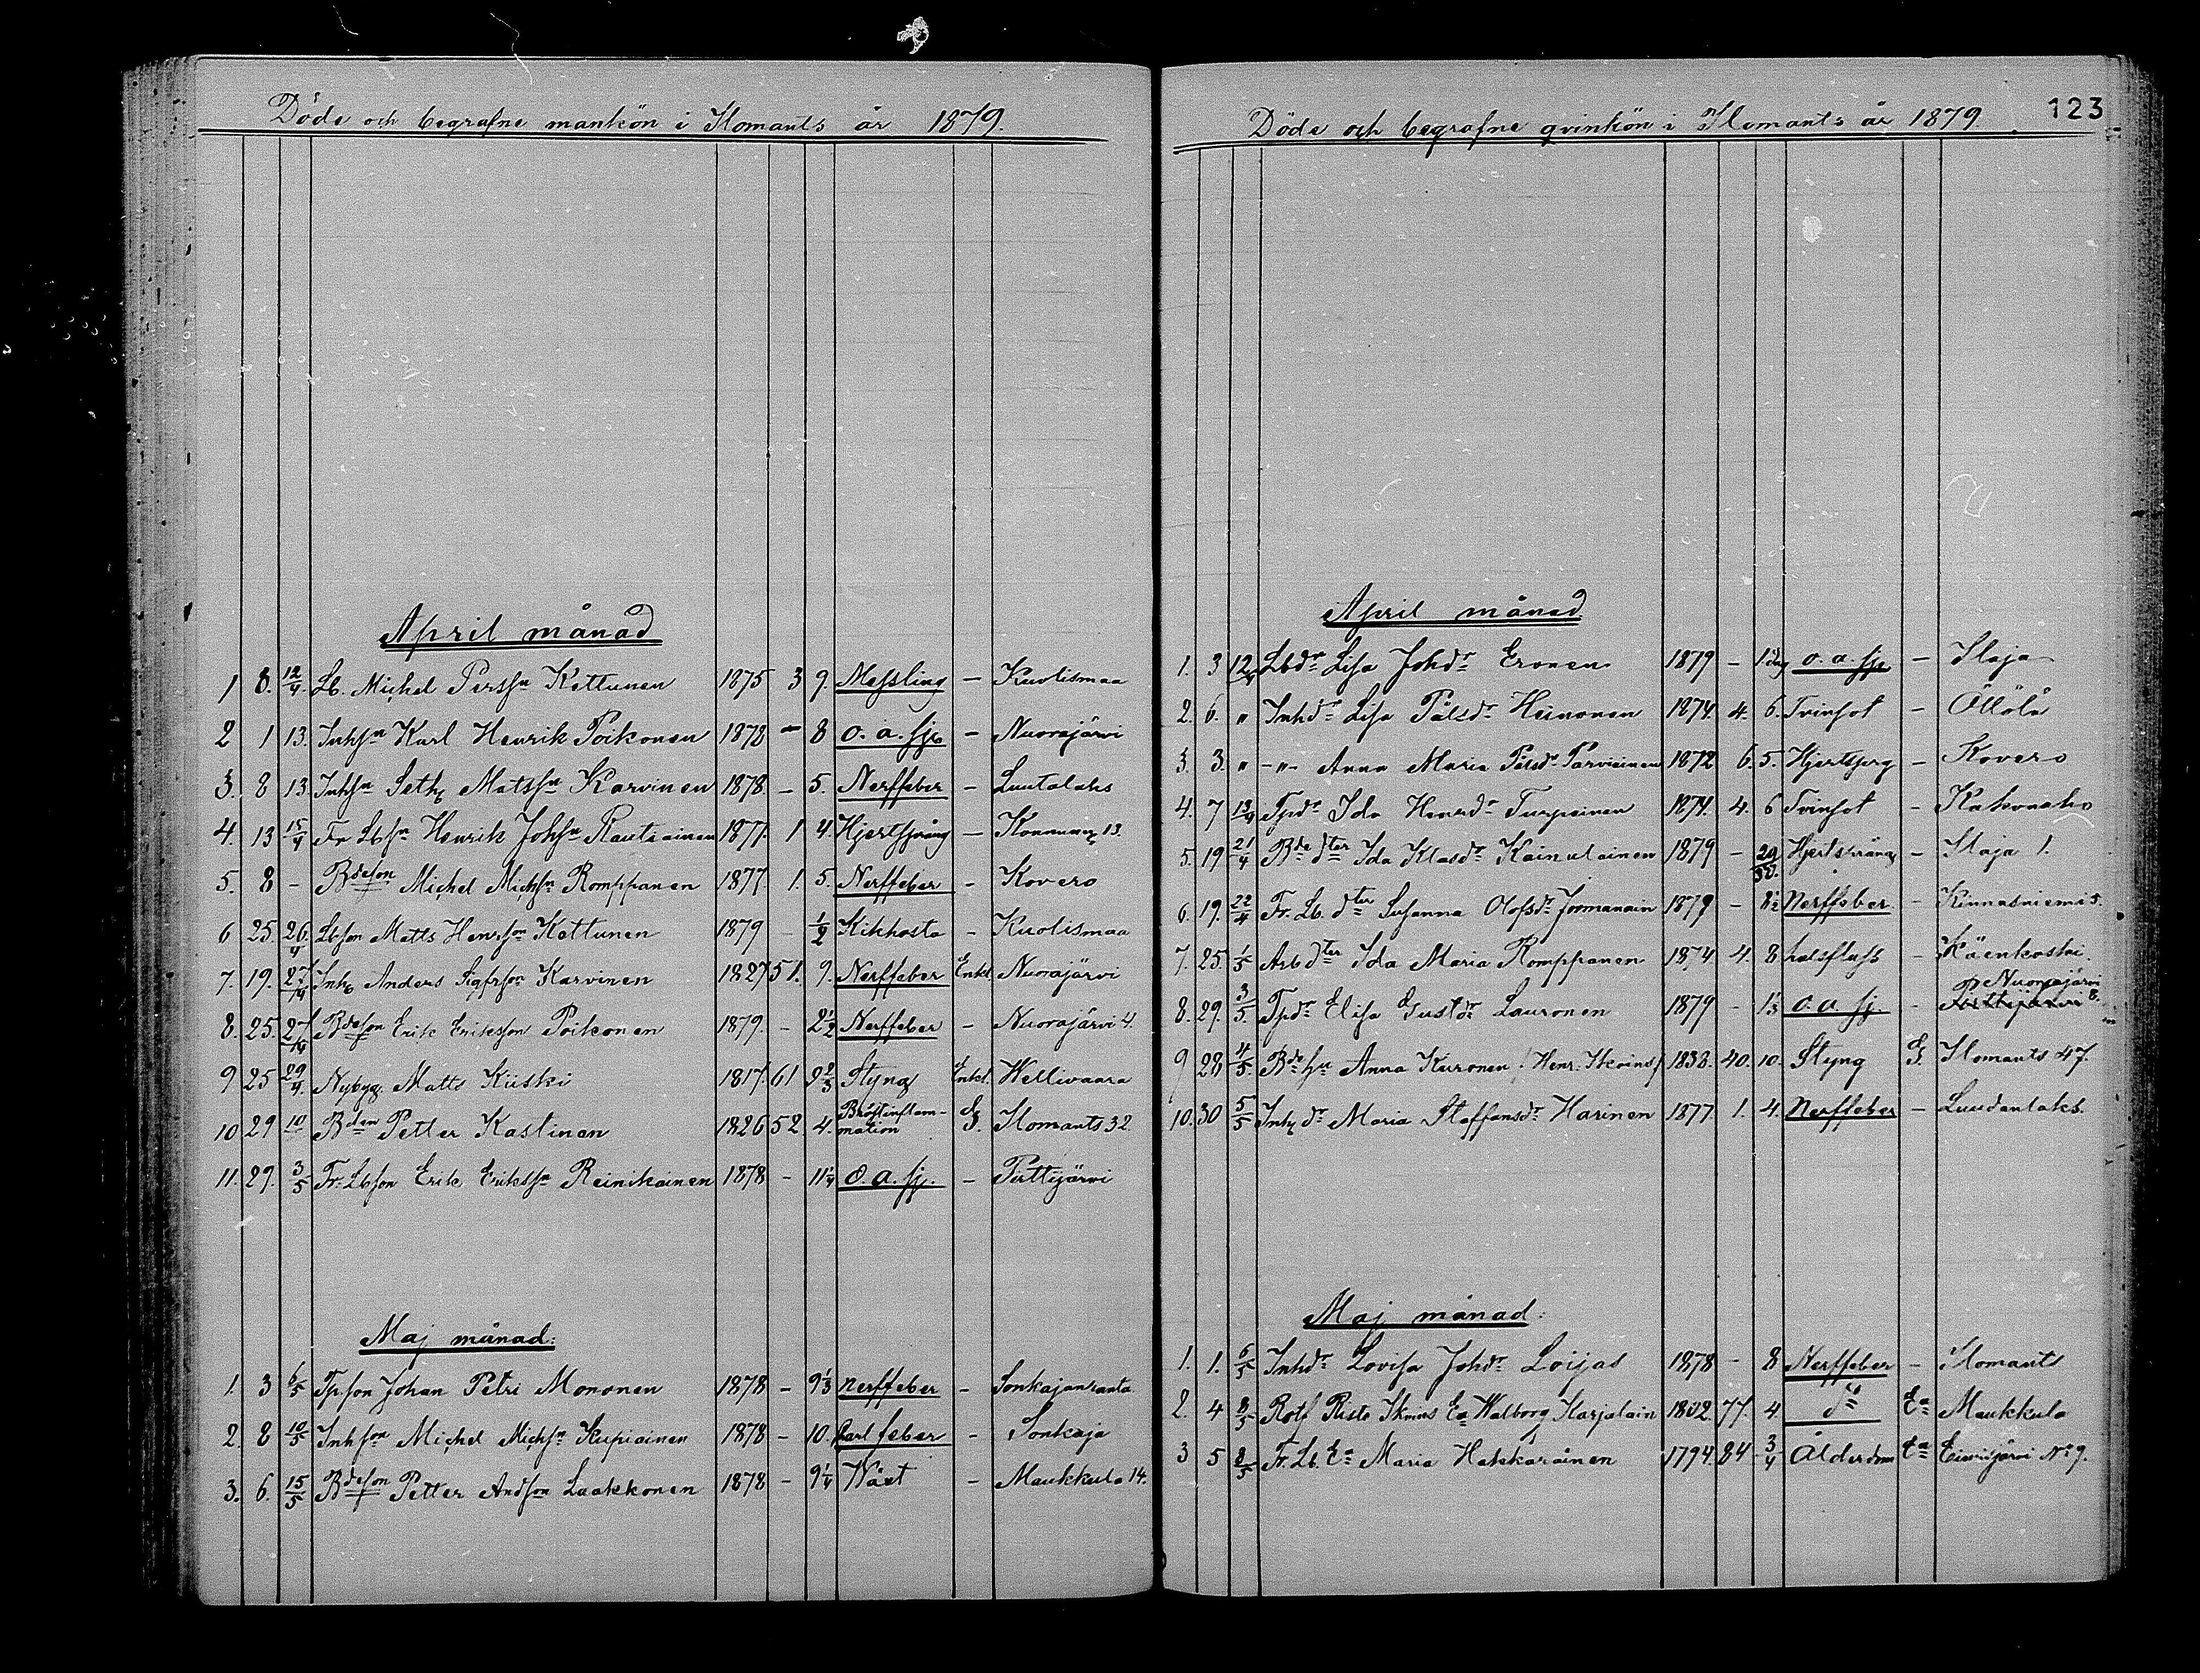 Döde och begrafne mankön i Ilomants år 1879.
April månad
1 8. 12/4 Lb. Michel Persson Kettunen 1875 3 9. Messling – Kuolismaa
2 1 13. Inhsn Karl Henrik Poikonen 1878 – 8 o. a. sj. – Nuorajärvi
3. 8 13. Inhsn Seth Mattssn Karvinen 1878 – 5. Nerffeber – Luutalaks
4. 13 15/4 Fr Lbsn Henrik Johsn Rautiainen 1877. 1 4. Hjertsprång – Konnunn. 13.
5. 8 – Bdeson Michel Michsn Romppanen 1877 1. 5. Nerffeber – Kovero
6 25. 26/4 Lbson Matts Henrson Kettunen 1879 – 1/2 Kikhosta – Kuolismaa
7. 19. 27/4 Inh. Anders Sigfrson Karvinen 1827 51. 9. Nerffeber Enkl. Nuorajärvi
8. 25. 27/4 Bdeson Erik Eriksson Poikonen 1879. – 2 1/2 Nerffeber – Nuorajärvi 4.
9 25 29/4. Nybygg. Matts Kiiski 1817. 61 9 2/3 Styng Enkl. Wellivaara
10 29 10 Bden Petter Kastinen 1826 52 4. Bröstinflammation G. Ilomants 32.
11. 29. 3/5 Fr. Lbson Erik Erikssn Reinikainen 1878 – 11 1/4 o. a. sj. – Pirttijärvi
Maj månad:
1. 3 6/5 Tpson Johan Petri Mononen 1878 – 9 1/3 nerffeber – Sonkajanranta
2. 8 10/5 Inhson Michel Michsn Kupiainen 1878 – 10. feber – Sonkaja
3. 6. 15/5 Bdeson Petter Andson Laakkonen 1878 – 9 1/4 Wäxt – Maukkula 14.
Döde och begrafne qvinkön i Ilomants år 1879. 123
April månad
1. 3 12/4 Lbdr Lisa Johdr Eronen 1879 – 1 dag o. a. sj. – Ilaja
2. 6. " Inhdr Lisa Pålsdr Heinonen 1874. 4. 6. Tvinsot – Öllölä
3. 3. " -"- Anna Maria Pålsdr Parviainen 1872 6. 5. Hjertsprg – Kovero
4. 7 13/4 Tpdr Ida Henrdr Turpeinen 1874. 4. 6 Tvinsot – Kakonaho
5. 19 21/4 Bde dter Ida Klasdr Kainulainen 1879 – 29/30. Hjertsprång – Ilaja 1.
6. 19. 22/4 Fr. Lb. dter Susanna Olofsdr Jormanain 1879 – nerffeber – Kinnasniemi 5.
7. 25. 1/5 Arb dter Ida Maria Romppanen 1874 4. 8 halsfluss – Käenkoski.
8. 29. 3/5 Tpdr Elisa Gustdr Lauronen 1879 – o. a. sj. – Nuorajärvi 8.
9 28 4/5. Bde hu Anna Kurronen /Henr. Ikoins/ 1838. 40. 10. Styng G. Ilomants 47.
10. 30 5/5 Inh dr Maria Staffansdr Harinen 1877. 1. 4. Nerffeber – Luudanlaks.
Maj månad:
1. 1. 6/5 Inhdr Lovisa Johdr Loijas 1878 – 8 Nerffeber – Ilomants
2. 4 8/5 Rotf Risto Ikoins Ea Walborg Karjalain 1802. 77. 4. do Ea Maukkula
3 5 8/5 Fr. Lb. Ea Maria Hakkarainen 1794. 84 3/4 Ålderdom Ea Eimisjärvi No 9.